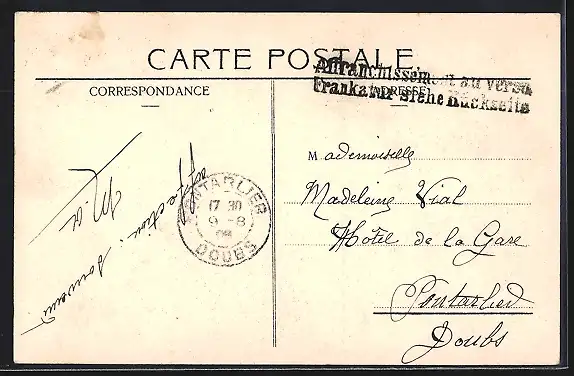 CARTE POSTALE
Affranchissement au verso
Frankatur siehe Rückseite
CORRESPONDANCE
ADRESSE
Affection. Souvenir
M.
PONTARLIER
17 30
9 - 8
09
DOUBS
Mademoiselle
Madeleine Vial
Hôtel de la Gare
Pontarlier
Doubs